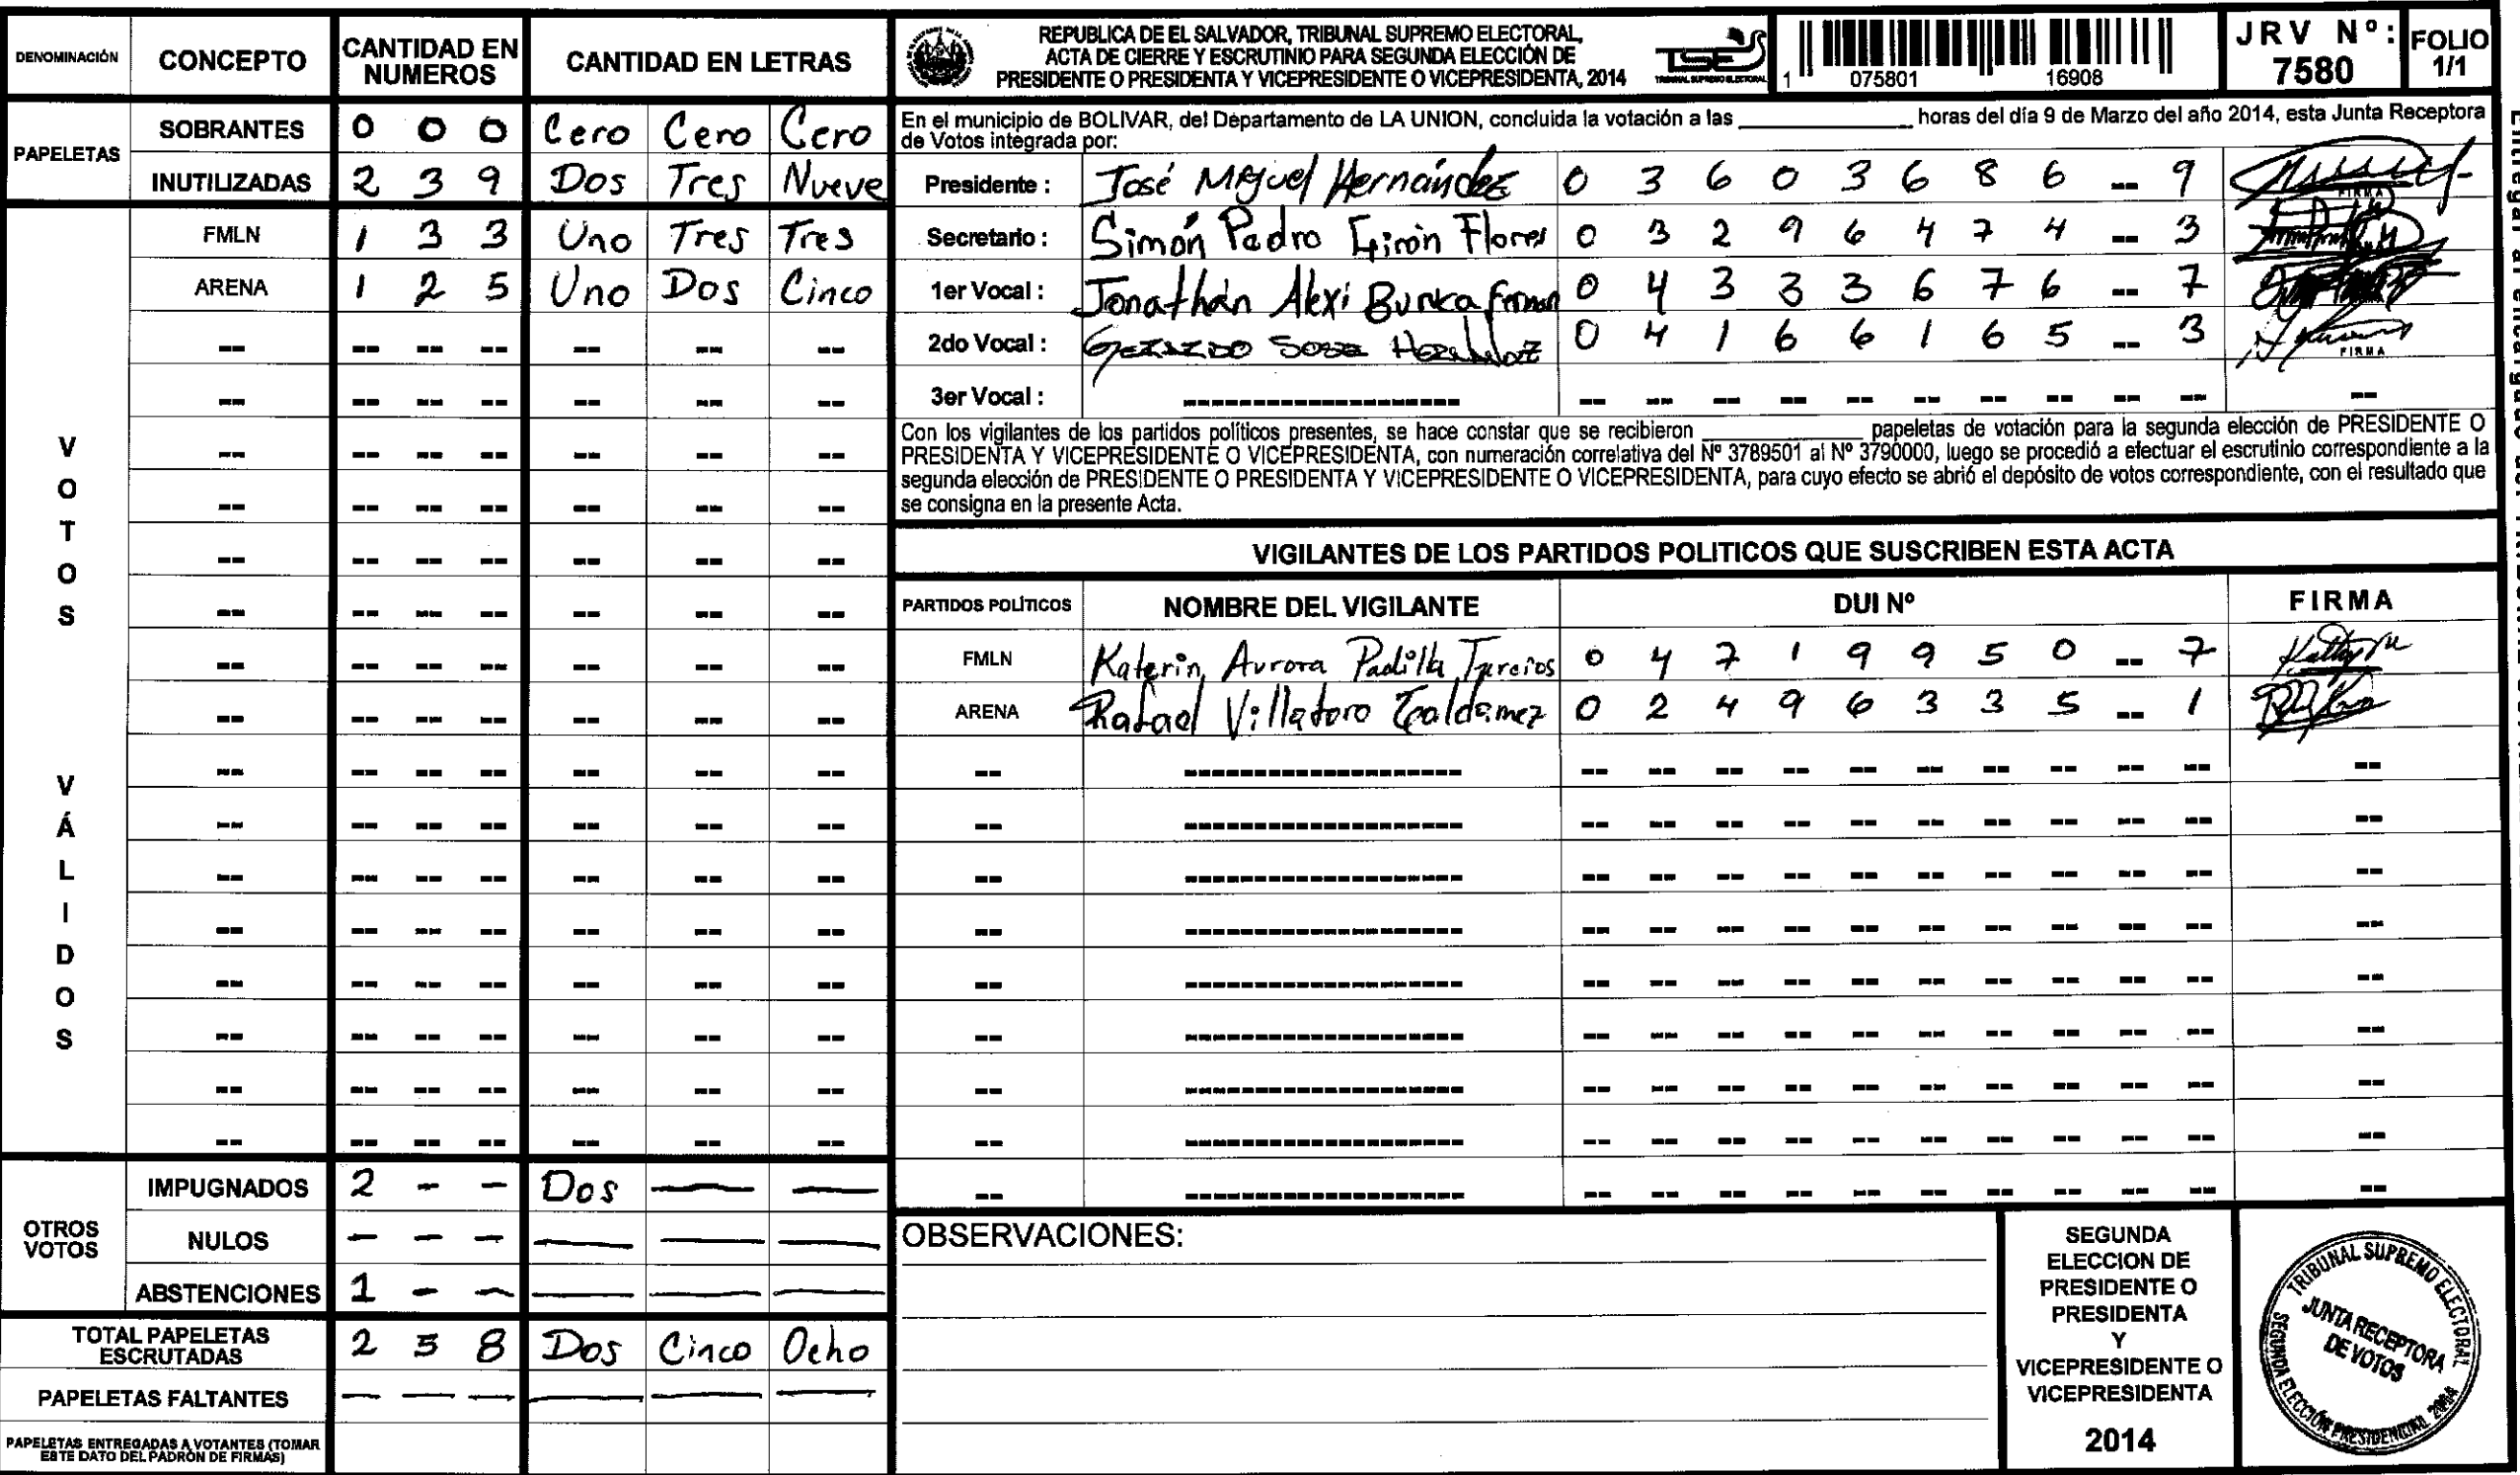 DENOMINACIÓN CONCEPTO CANTIDAD EN NUMEROS CANTIDAD EN LETRAS
PAPELETAS
SOBRANTES 0 0 0 Cero Cero Cero
INUTILIZADAS 2 3 9 Dos Tres Nueve
VOTOS VÁLIDOS
FMLN 1 3 3 Uno Tres Tres
ARENA 1 2 5 Uno Dos Cinco
OTROS VOTOS
IMPUGNADOS 2 - - Dos — —
NULOS - - - — — —
ABSTENCIONES 1 - - — — —
TOTAL PAPELETAS ESCRUTADAS 2 5 8 Dos Cinco Ocho
PAPELETAS FALTANTES - - - — — —
PAPELETAS ENTREGADAS A VOTANTES (TOMAR
ESTE DATO DEL PADRÓN DE FIRMAS)
REPUBLICA DE EL SALVADOR, TRIBUNAL SUPREMO ELECTORAL,
ACTA DE CIERRE Y ESCRUTINIO PARA SEGUNDA ELECCIÓN DE
PRESIDENTE O PRESIDENTA Y VICEPRESIDENTE O VICEPRESIDENTA, 2014
TSE
TRIBUNAL SUPREMO ELECTORAL
1 075801 16908
JRV Nº: 7580
FOLIO 1/1
En el municipio de BOLIVAR, del Departamento de LA UNION, concluida la votación a las ____________ horas del día 9 de Marzo del año 2014, esta Junta Receptora
de Votos integrada por:
Presidente : José Miguel Hernández 0 3 6 0 3 6 8 6 -- 9 FIRMA
Secretario : Simón Pedro Girón Flores 0 3 2 9 6 4 7 4 -- 3
1er Vocal : Jonathan Alexi 0 4 3 3 3 6 7 6 -- 7
2do Vocal : 0 4 1 6 6 1 6 5 -- 3 FIRMA
3er Vocal :
Con los vigilantes de los partidos políticos presentes, se hace constar que se recibieron ____________ papeletas de votación para la segunda elección de PRESIDENTE O
PRESIDENTA Y VICEPRESIDENTE O VICEPRESIDENTA, con numeración correlativa del Nº 3789501 al Nº 3790000, luego se procedió a efectuar el escrutinio correspondiente a la
segunda elección de PRESIDENTE O PRESIDENTA Y VICEPRESIDENTE O VICEPRESIDENTA, para cuyo efecto se abrió el depósito de votos correspondiente, con el resultado que
se consigna en la presente Acta.
VIGILANTES DE LOS PARTIDOS POLITICOS QUE SUSCRIBEN ESTA ACTA
PARTIDOS POLÍTICOS NOMBRE DEL VIGILANTE DUI Nº FIRMA
FMLN Katerin Aurora Padilla Turcios 0 4 7 1 9 9 5 0 -- 7
ARENA Rafael Villatoro 0 2 4 9 6 3 3 5 -- 1
OBSERVACIONES:
SEGUNDA
ELECCION DE
PRESIDENTE O
PRESIDENTA
Y
VICEPRESIDENTE O
VICEPRESIDENTA
2014
TRIBUNAL SUPREMO ELECTORAL
JUNTA RECEPTORA
DE VOTOS
SEGUNDA ELECCIÓN PRESIDENCIAL 2014